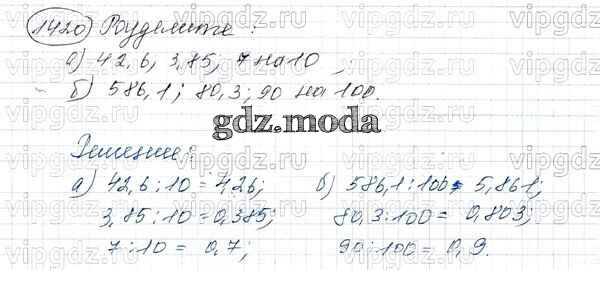 1420 Разделите:
а) 42,6; 3,85; 7 на 10;
б) 586,1; 80,3; 90 на 100.
gdz.moda
Решение:
а) 42,6:10 = 4,26; б) 586,1:100 = 5,861;
3,85:10 = 0,385; 80,3:100 = 0,803;
7:10 = 0,7; 90:100 = 0,9.